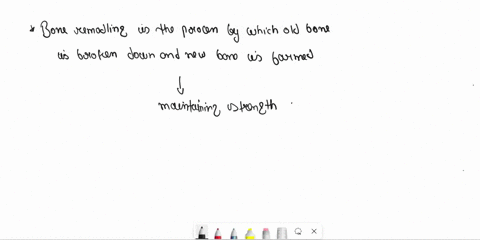 * Bone remodling is the porocen by which old bone
is broken down and new bone is formed
↓
maintaining strength